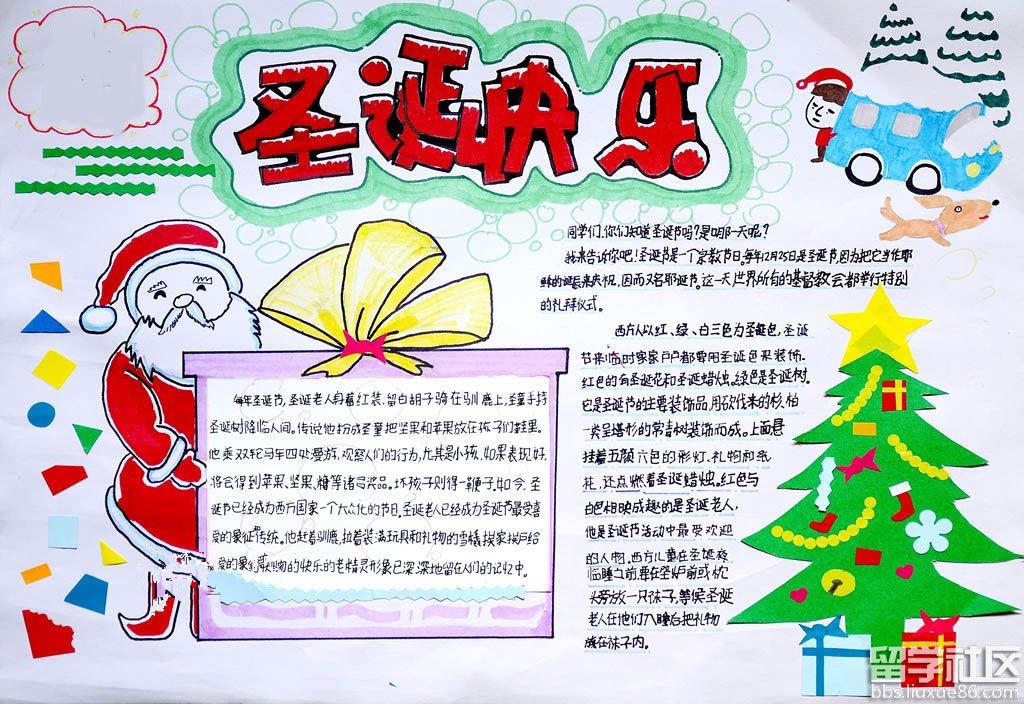 圣诞快乐
同学们,你们知道圣诞节吗?是哪一天呢?
我来告诉你吧!圣诞节是一个宗教节日,每年12月25日是圣诞节,因为把它当作耶
稣的诞辰来庆祝,因而又名耶诞节。这一天世界所有的基督教会都举行特别
的礼拜仪式。
西方人以红、绿、白三色为圣诞色,圣诞
节来临时家家户户都要用圣诞色来装饰。
红色的有圣诞花和圣诞蜡烛。绿色是圣诞树。
它是圣诞节的主要装饰品,用砍伐来的杉、柏
一类呈塔形的常青树装饰而成。上面悬
挂着五颜六色的彩灯、礼物和纸
花,还点燃着圣诞蜡烛。红色与
白色相映成趣的是圣诞老人,
他是圣诞节活动中最受欢迎
的人物。西方儿童在圣诞夜
临睡之前,要在壁炉前或枕
头旁放一只袜子,等候圣诞
老人在他们入睡后把礼物
放在袜子内。
每年圣诞节,圣诞老人身着红装、留白胡子骑在驯鹿上,圣童手持
圣诞树降临人间。传说他扮成圣童把坚果和苹果放在孩子们鞋里。
他乘双轮马车四处漫游,观察人们的行为,尤其是小孩,如果表现好,
将会得到苹果、坚果、糖等诸多奖品。坏孩子则得一鞭子。如今,圣
诞节已经成为西方国家一个大众化的节日。圣诞老人已经成为圣诞节最受喜
爱的象征传统。他赶着驯鹿,拉着装满玩具和礼物的雪橇挨家挨户给
礼物的快乐的老精灵形象已深深地留在人们的记忆中。
留学社区
bbs.liuxue86.com